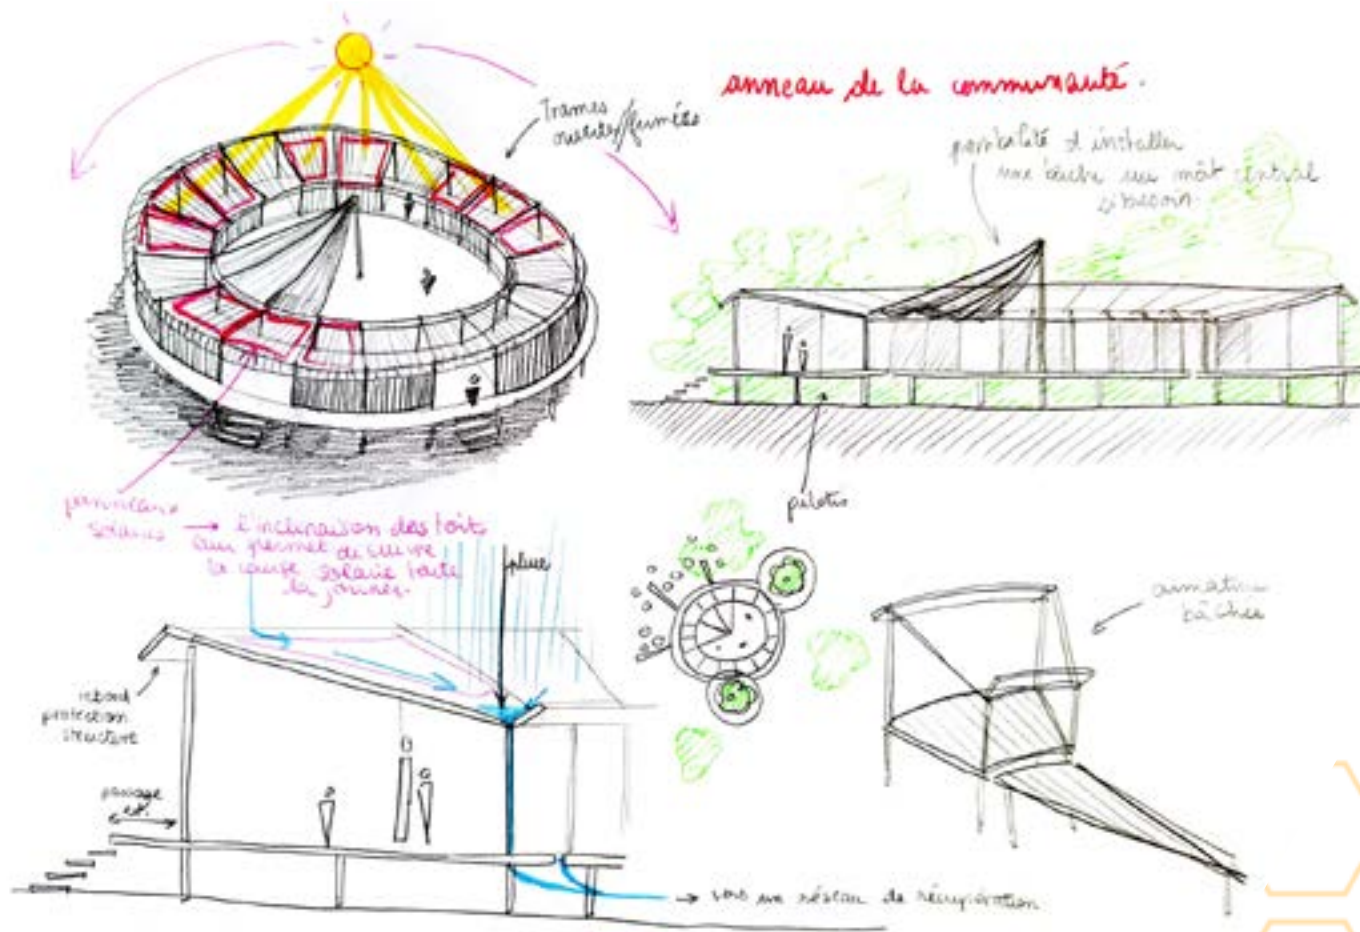 anneau de la communauté.
Trames
ouvertes/fermées
possibilité d'installer
une bâche au mât central
si besoin.
pilotis
panneaux
solaires → l'inclinaison des toits
qui permet de suivre
la course solaire toute
la journée.
pluie
rebord
protection
structure
passage
ext.
→ vers un réseau de récupération
armature
bâchée